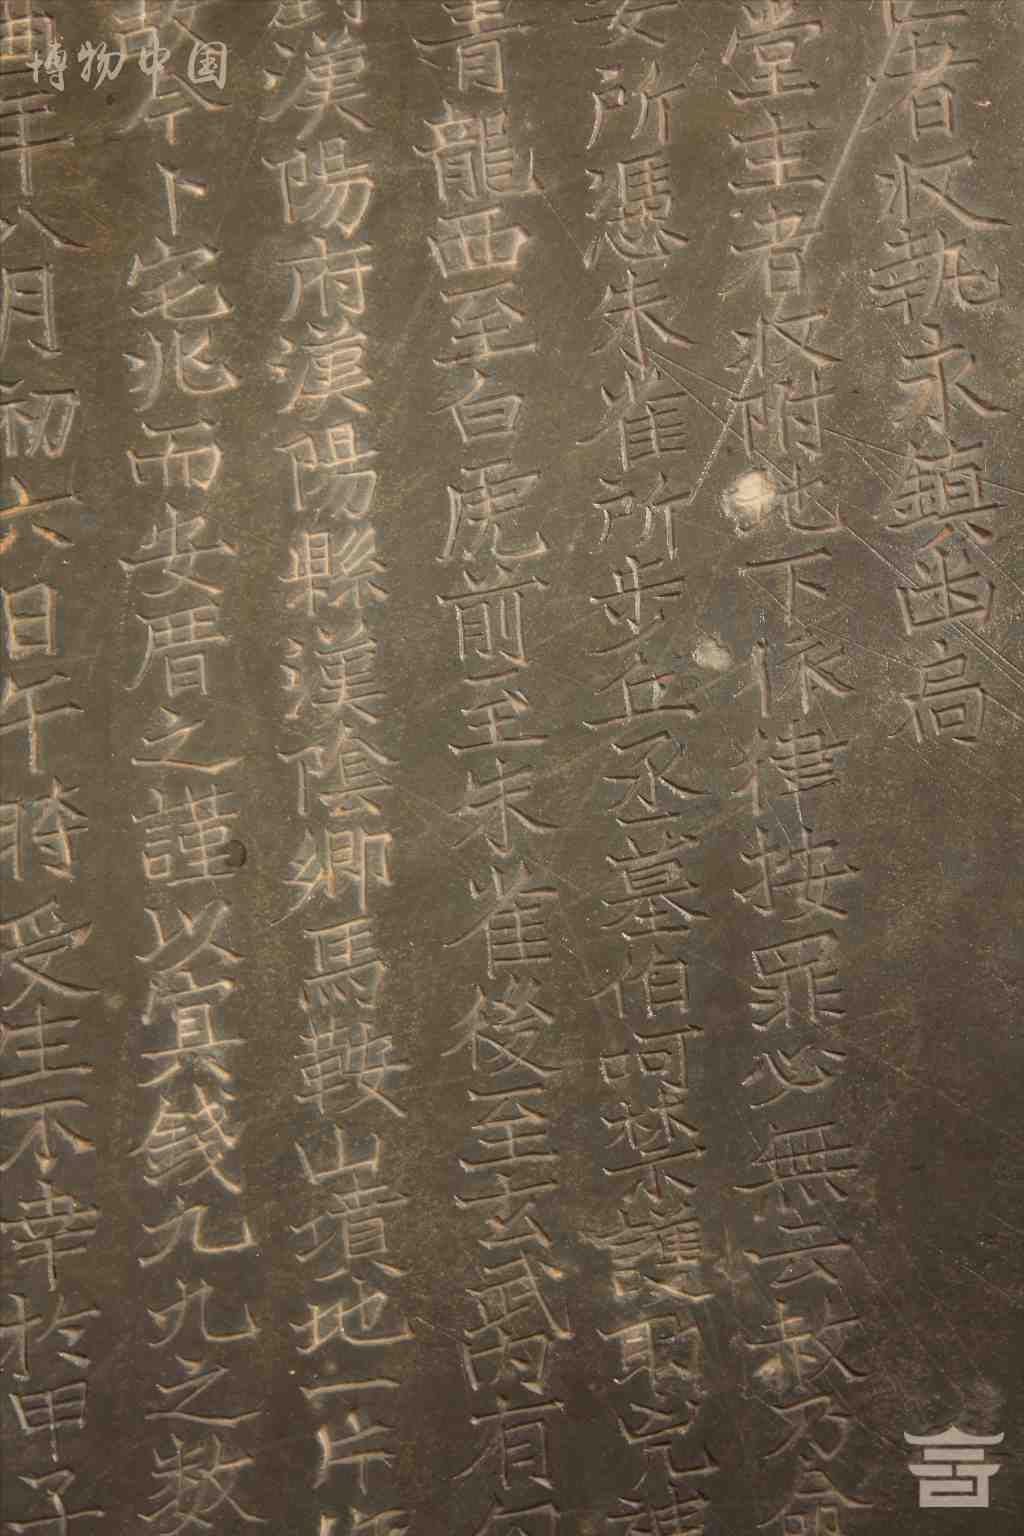 年八月初六日午時受生不幸於甲子
故今卜宅兆而安厝之謹以冥錢九九之數
漢陽府漢陽縣漢陰鄉馬鞍山墳地一片
青龍西至白虎前至朱雀後至玄武內有勾
所憑朱雀所步丘丞墓伯呵禁護敢兇神
堂主者收附地下依律按罪必無赦乃命
者收執永鎮幽高
博物中国